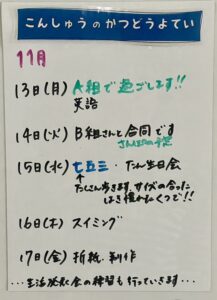 こんしゅうのかつどうよてい
11月
13日(月) A組で過ごします!!
英語
14日(火) B組さんと合同です
15日(水) 七五三・たん生日会
たくさん歩きます。サイズの合った
はき慣れたくつで!!
16日(木) スイミング
17日(金) 折紙・制作
…生活発表会の練習も行っていきます…